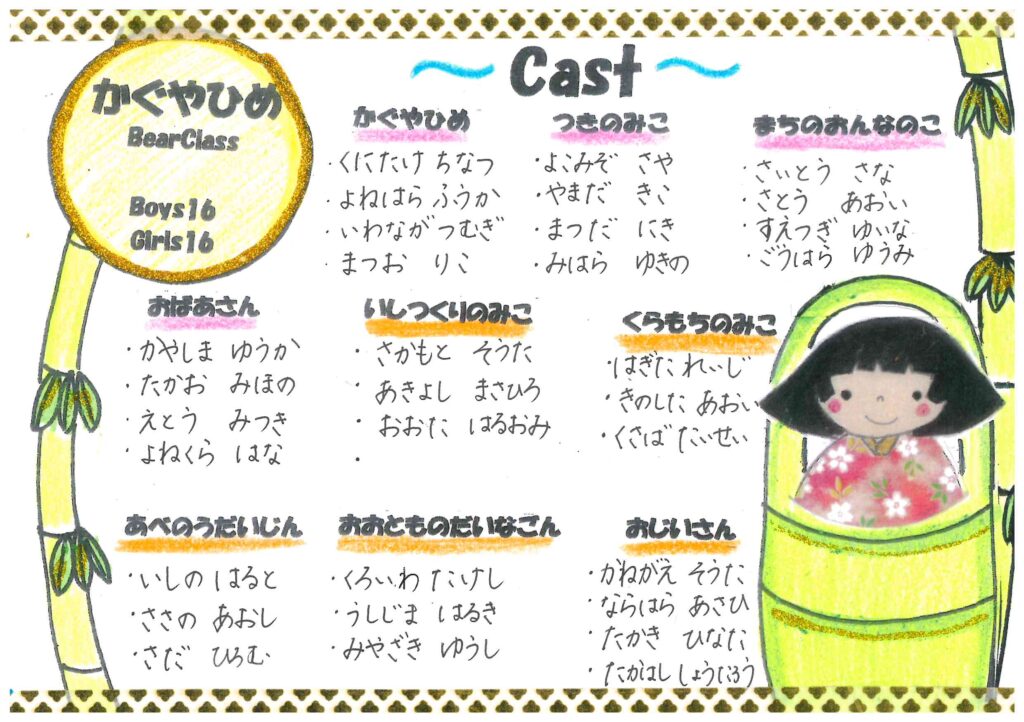 かぐやひめ
BearClass
Boys16
Girls16
～ Cast ～
かぐやひめ
・くにたけ ちなつ
・よねはら ふうか
・いわなが つむぎ
・まつお りこ
つきのみこ
・よこみぞ さや
・やまだ きこ
・まつだ にき
・みはら ゆきの
まちのおんなのこ
・さいとう さな
・さとう あおい
・すえつぎ ゆいな
・ごうはら ゆうみ
おばあさん
・かやしま ゆうか
・たかお みほの
・えとう みつき
・よねくら はな
いしつくりのみこ
・さかもと そうた
・あきよし まさひろ
・おおた はるおみ
・
くらもちのみこ
・はぎた れいじ
・きのした あおい
・くさば たいせい
あべのうだいじん
・いしの はると
・ささの あおし
・さだ ひろむ
おおとものだいなごん
・くろいわ たけし
・うしじま はるき
・みやざき ゆうし
おじいさん
・かねがえ そうた
・ならはら あさひ
・たかき ひなた
・たかはし しょうたろう